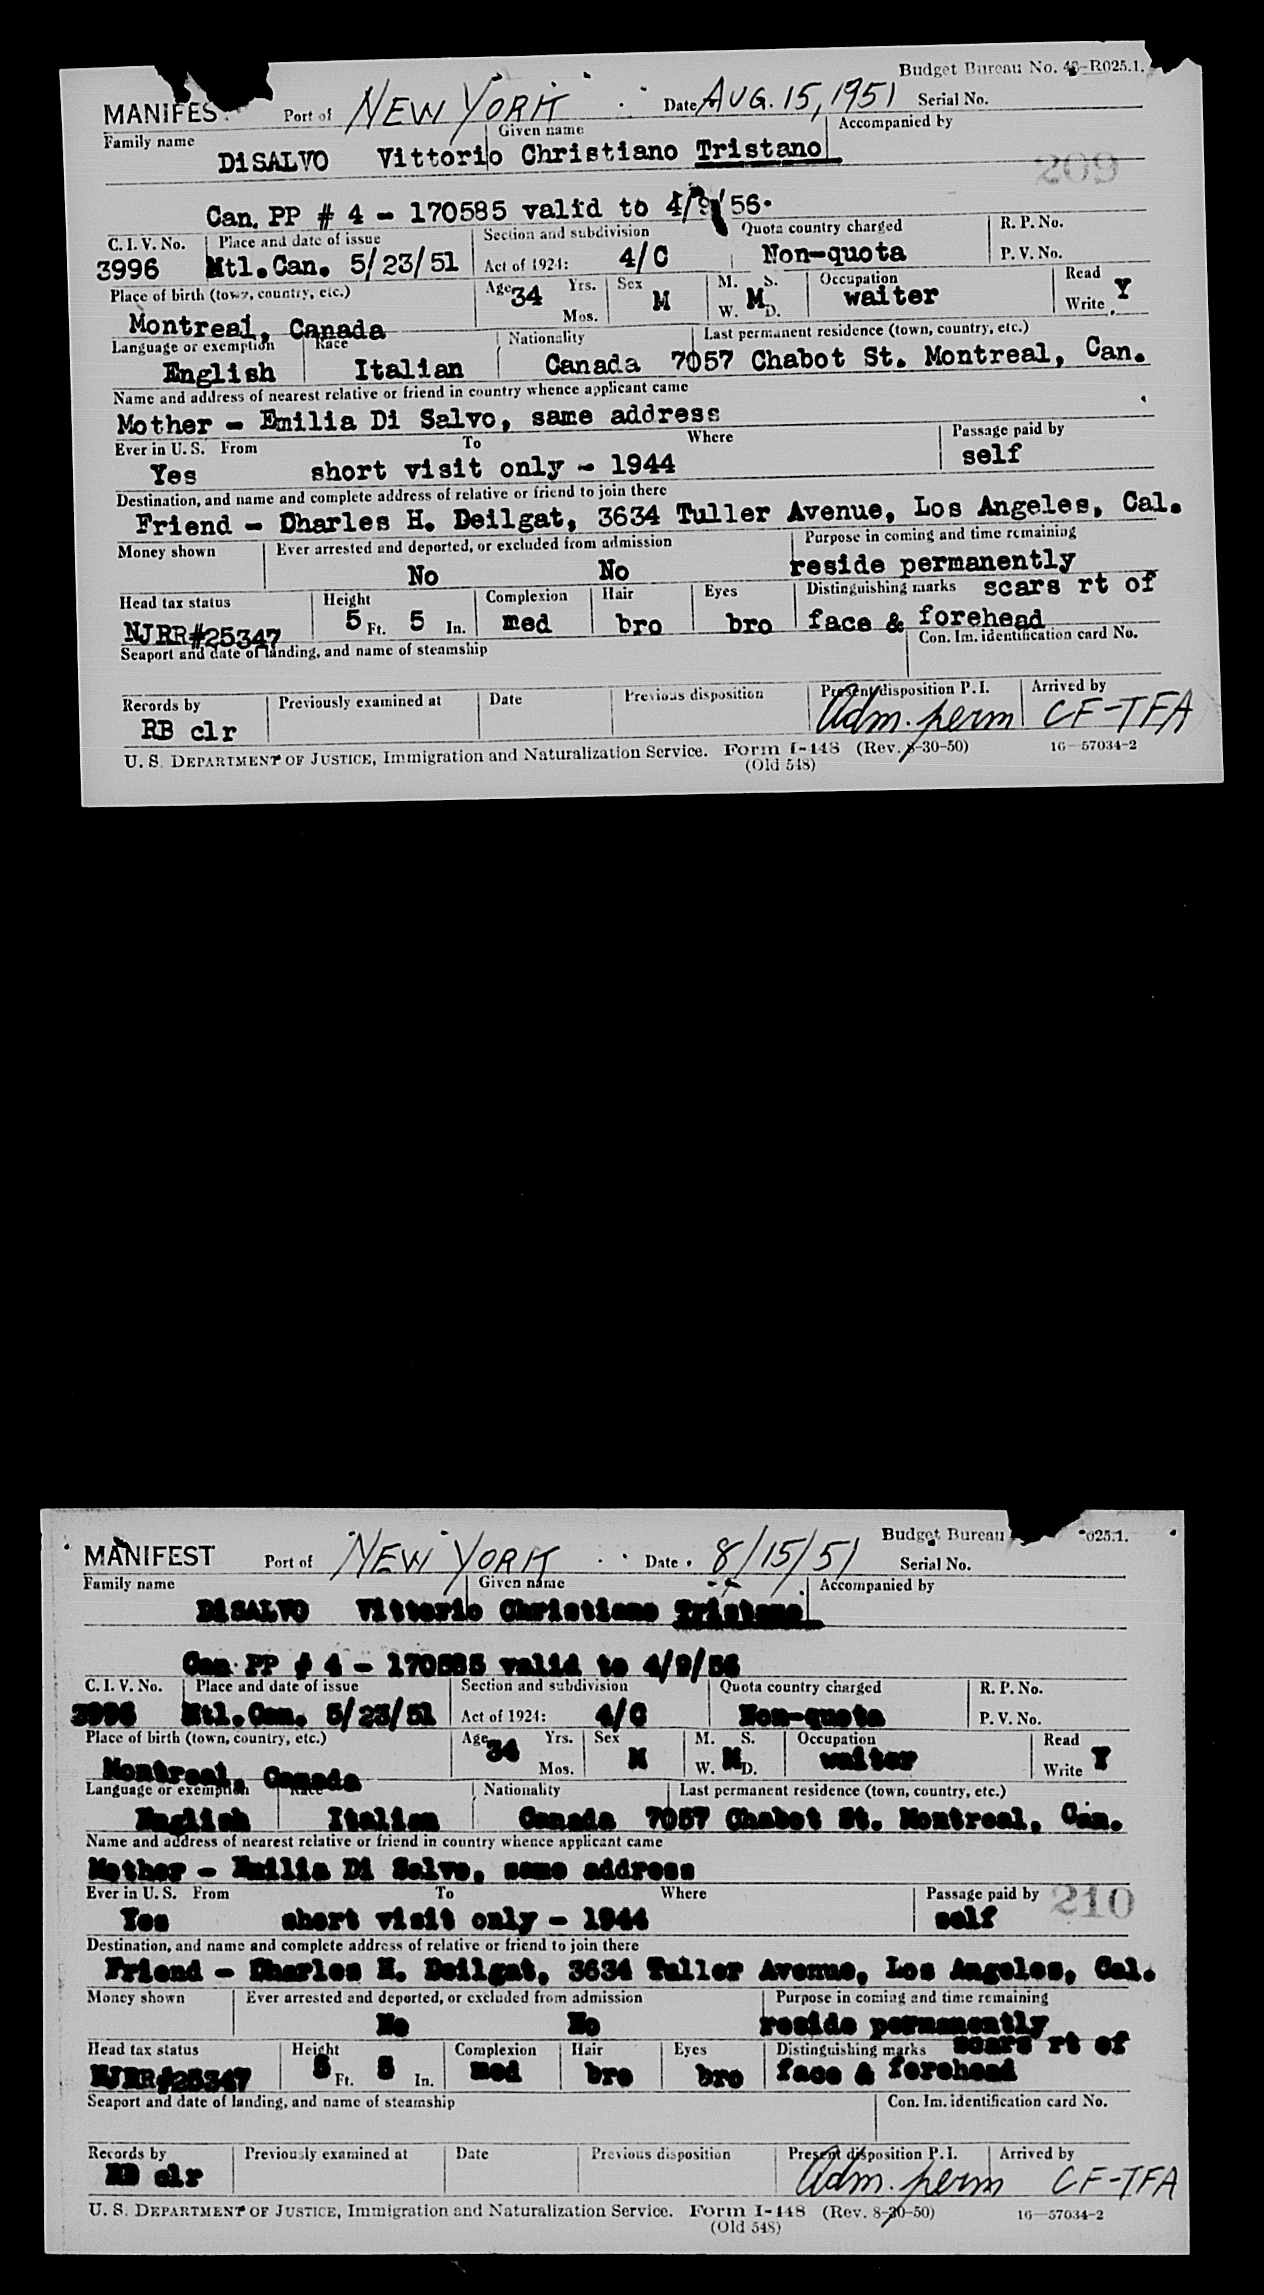 Budget Bureau No. 43-R025.1.
MANIFES Port of NEW YORK Date AUG. 15, 1951 Serial No.
Family name Given name Accompanied by
DiSALVO Vittorio Christiano Tristano
209
Can. PP # 4 - 170585 valid to 4/9/56.
C. I. V. No. Place and date of issue Section and subdivision Quota country charged R. P. No.
3996 Mtl.Can. 5/23/51 Act of 1924: 4/C Non-quota P. V. No.
Place of birth (town, country, etc.) Age 34 Yrs. Mos. Sex M M. S. W. D. M Occupation waiter Read Write Y
Montreal, Canada
Language or exemption Race Nationality Last permanent residence (town, country, etc.)
English Italian Canada 7057 Chabot St. Montreal, Can.
Name and address of nearest relative or friend in country whence applicant came
Mother - Emilia Di Salvo, same address
Ever in U. S. From To Where Passage paid by
Yes short visit only - 1944 self
Destination, and name and complete address of relative or friend to join there
Friend - Dharles H. Deilgat, 3634 Tuller Avenue, Los Angeles, Cal.
Money shown Ever arrested and deported, or excluded from admission Purpose in coming and time remaining
No No reside permanently
Head tax status Height Complexion Hair Eyes Distinguishing marks scars rt of
NJRR#25347 5 Ft. 5 In. med bro bro face & forehead
Seaport and date of landing, and name of steamship Con. Im. identification card No.
Records by Previously examined at Date Previous disposition Present disposition P. I. Arrived by
RB clr Adm. perm CF-TFA
U. S. DEPARTMENT OF JUSTICE, Immigration and Naturalization Service. Form I-448 (Rev. 8-30-50) 16—57034-2
(Old 548)
Budget Bureau 025.1.
MANIFEST Port of NEW YORK Date 8/15/51 Serial No.
Family name Given name Accompanied by
DiSALVO Vittorio Christiano Tristano
Can PP # 4 - 170585 valid to 4/9/56
C. I. V. No. Place and date of issue Section and subdivision Quota country charged R. P. No.
3996 Mtl.Can. 5/23/51 Act of 1924: 4/C Non-quota P. V. No.
Place of birth (town, country, etc.) Age 34 Yrs. Mos. Sex M M. S. W. D. M Occupation waiter Read Write Y
Montreal, Canada
Language or exemption Race Nationality Last permanent residence (town, country, etc.)
English Italian Canada 7057 Chabot St. Montreal, Can.
Name and address of nearest relative or friend in country whence applicant came
Mother - Emilia Di Salvo, same address
Ever in U. S. From To Where Passage paid by 210
Yes short visit only - 1944 self
Destination, and name and complete address of relative or friend to join there
Friend - Dharles H. Deilgat, 3634 Tuller Avenue, Los Angeles, Cal.
Money shown Ever arrested and deported, or excluded from admission Purpose in coming and time remaining
No No reside permanently
Head tax status Height Complexion Hair Eyes Distinguishing marks scars rt of
NJRR#25347 5 Ft. 5 In. med bro bro face & forehead
Seaport and date of landing, and name of steamship Con. Im. identification card No.
Records by Previously examined at Date Previous disposition Present disposition P. I. Arrived by
RB clr Adm. perm CF-TFA
U. S. DEPARTMENT OF JUSTICE, Immigration and Naturalization Service. Form I-448 (Rev. 8-30-50) 16—57034-2
(Old 548)